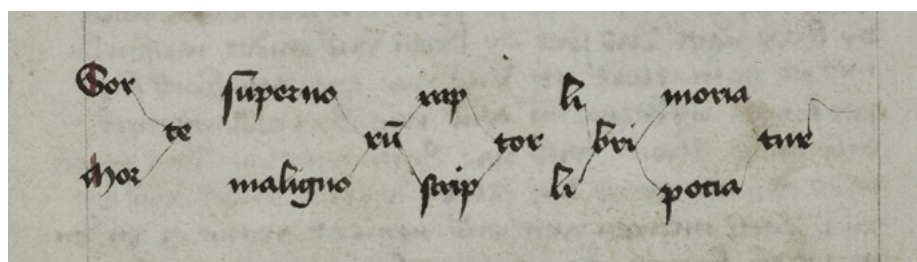 Sor sūperno rap li moria
te rū tor bri tur
Mor maligno scrip li pocia